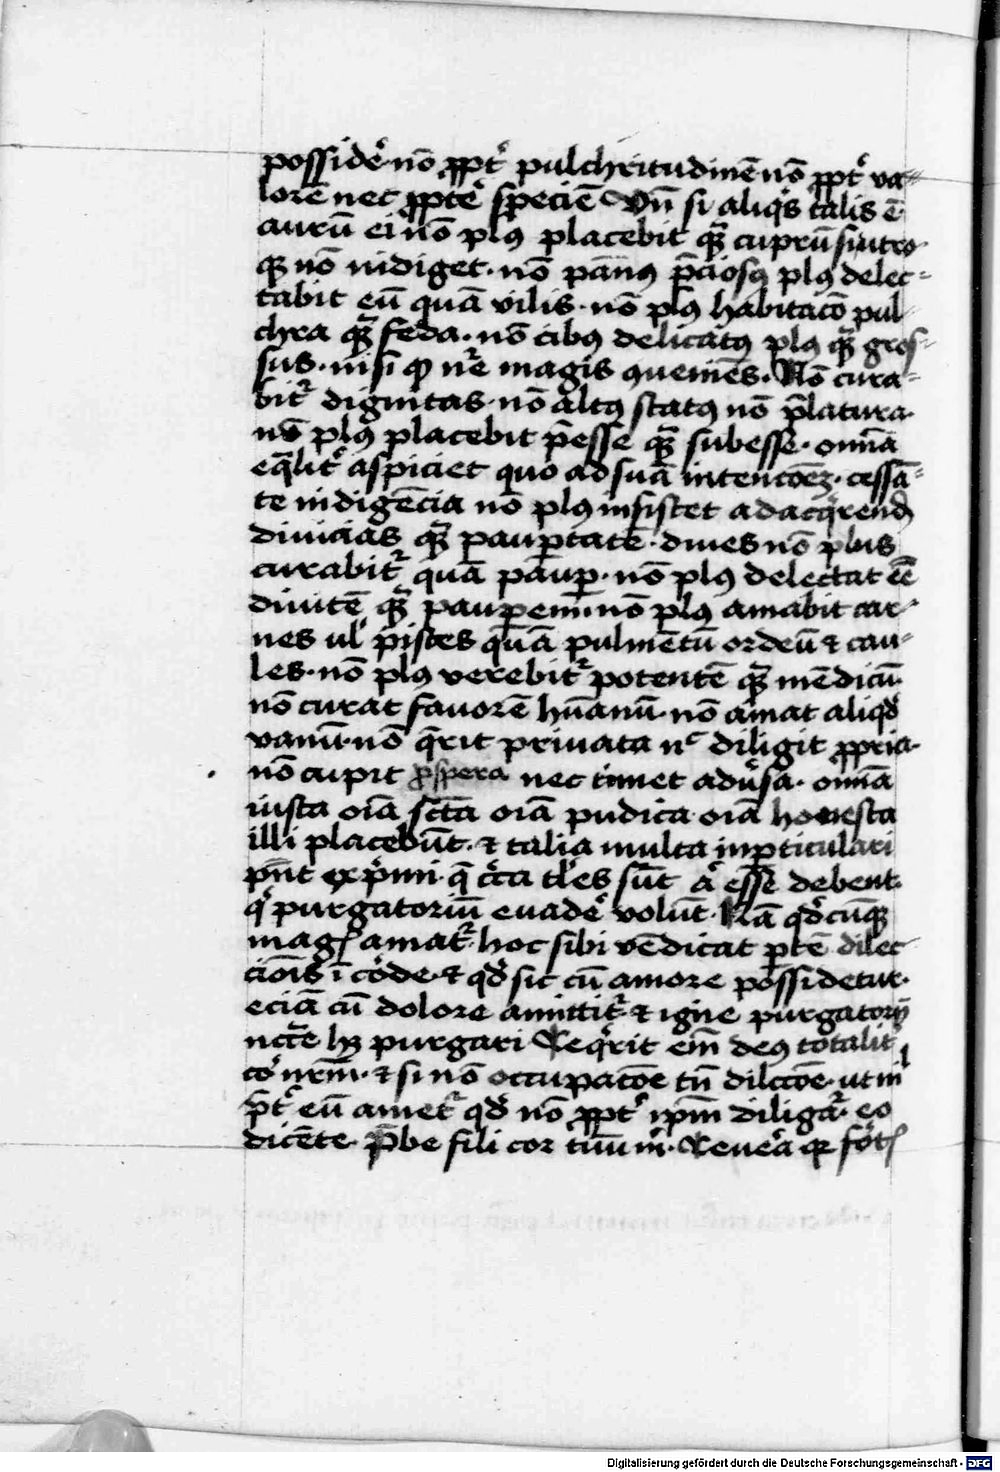 posside᷒ nō ꝓpt᷒ pulchritudinē nō ꝓpt᷒ va-
lorē nec ꝓpte᷒ speciē Vn̄ si aliqͥs talis ē
aurū ei nō plꝰ placebit qͣꝫ cuprū si utro-
qꝫ nō indiget · nō pānꝰ p̄ciosꝰ plꝰ delec-
tabit eū quā vilis · nō plꝰ habitacō pul-
chra qͣꝫ feda · nō cibꝰ delicatꝰ plꝰ qͣꝫ gros-
sus · nisi ꝙ nr̄e magis ꝯueniēs · Nō cura-
bit᷒ dignitas nō altꝰ statꝰ nō p̄latura ·
nō plꝰ placebit p̄esse qͣꝫ subesse · omīa
eq̄lit᷒ aspiciet quo ad suā intencōeꝫ · cessā-
te indigēcia nō plꝰ insistet ad acqͥrend̄
diuicias qͣꝫ paup̱tatē · diues nō plus
curabit᷒ quā paup̱ · nō plꝰ delectat eē
diuitē qͣꝫ paup̱em · nō plꝰ amabit car-
nes ul᷒ pisces quā pulmētū ordeū ⁊ cau-
les · nō plꝰ verebit᷒ potentē qͣꝫ mēdicū ·
nō curat fauorē hūanū · nō amat aliqd̓
vanū · nō q̄rit priuata nͨ diligit ꝓpria ·
nō cupit ꝓspera nec timet adu᷒sa · omīa
iusta oīa sctā oīa pudica oīa honesta
illi placebūt · ⁊ talia multa in p̱ticulari
pn̄t exp̄mi · q̄ cͥca tl᷒es sūt a᷒ esse debent
qͥ purgatoriū euade᷒ volūt · Nā qd̓cūqꝫ
magꝭ amat᷒ · hoc sibi vēdicat p̱tē dilec-
cioīs ī co᷒de · ⁊ qd̓ sic cū amore possidetur ·
eciā cū dolore amittit᷒ · ⁊ igne purgatorij
nccͣe hꝫ purgari Reqͥrit em̄ deꝰ totalit᷒
co᷒ nr̄m · ⁊ si nō occupacōe tn̄ dilccōe · ut nil
p̄t᷒ eū amet᷒ qd̓ nō ꝓpt᷒ ipm̄ diligat᷒ · eo
dicēte · P̄be fili cor tuū m̓ · Reuea᷒ qꝛ fo᷒tꝭ
Digitalisierung gefördert durch die Deutsche Forschungsgemeinschaft - DFG